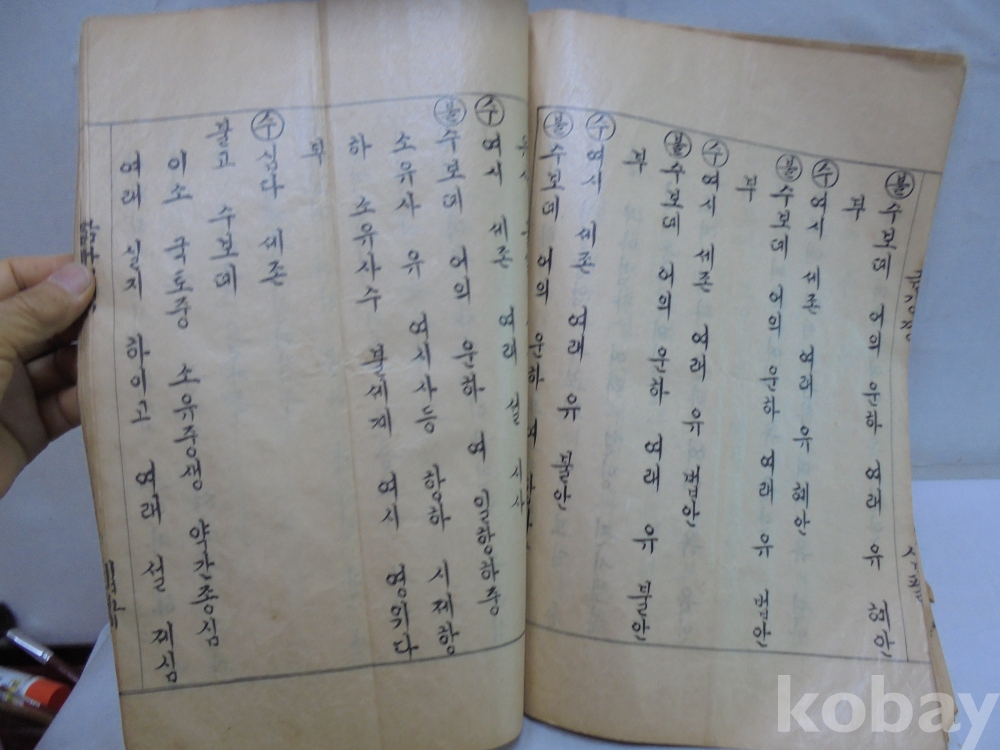 불 수보데 어의 운하 여래 유 혜안
부
수 여시 세존 여래 유 혜안
불 수보데 어의 운하 여래 유 법안
부
수 여시 세존 여래 유 법안
불 수보데 어의 운하 여래 유 불안
부
수 여시 세존 여래 유 불안
불 수보데 어의 운하 여
수 여시 세존 여래 설 시사
불 수보데 어의 운하 여 일항하중
소유사 유 여시사등 항하 시제항
하 소유사수 불세계 여시 영위다
부
수 심다 세존
불고 수보데
이소 국토중 소유중생 약간종심
여래 실지 하이고 여래 설 제심
kobay